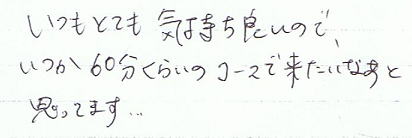 いつもとても気持ち良いので、
いつか60分くらいのコースで来たいなあと
思ってます…